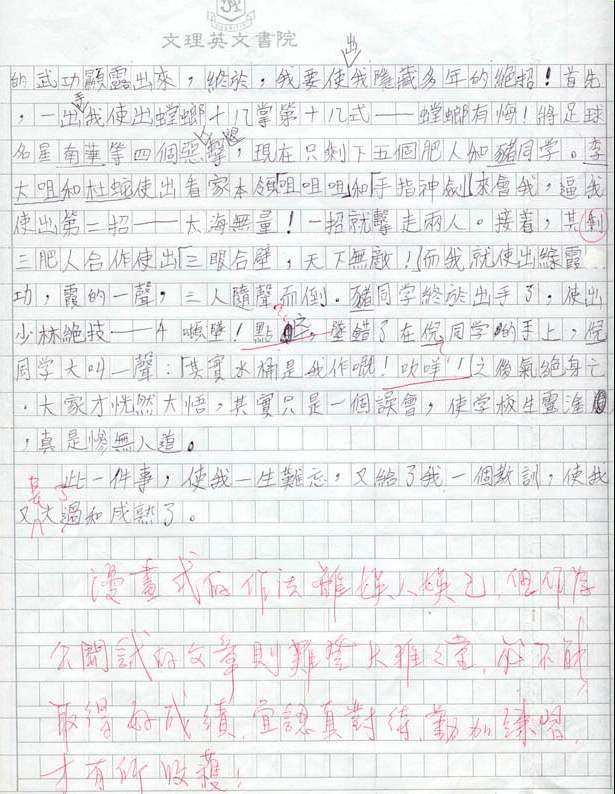 文理英文書院
出
的武功顯露出來,終於,我要使我隱藏多年的絕招!首先
,一出手我使出螳螂十八掌第十八式——螳螂有悔!將足球
名星南華等四個惡,現在只剩下五個肥人和豬同学。李
大咀和杜蛇使出看家本領「咀咀咀」和「手指神劍」來會我,逼我
使出第二招——大海無量!一招就擊走兩人。接着,其剩
三肥人合作使出「三眼合壁,天下無敵!」而我就使出綠霞
功,霞的一聲,三人隨聲而倒。豬同学終於出手了,使出
少林絕技——千墜!點之,墜錯了在倪同学的手上,倪
同学大叫一聲:「其實水桶是我作嘅!吹咩!」之後氣絕身亡
。大家才恍然大悟,其實只是一個誤會,使学校生靈塗
,真是慘無人道。
此一件事,使我一生難忘,又給了我一個教訓,使我
又大過和成熟了。
漫畫式的作法雖娛人娛己,但仍屬
公開試的文章則難登大雅之堂,必不能
取得好成績,宜認真對待,勤加練習,
才有所收穫!